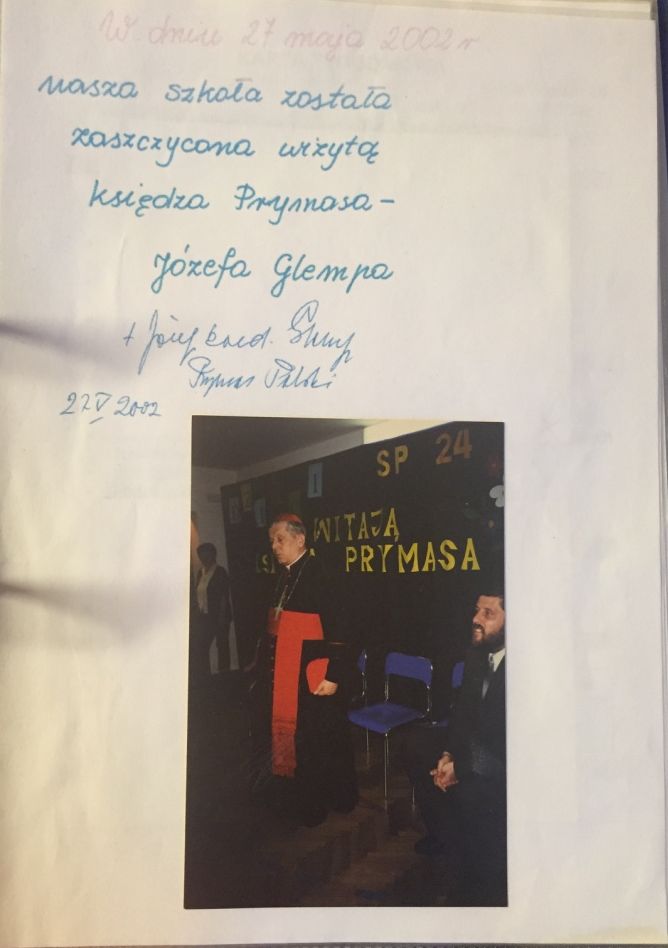 W dniu 27 maja 2002 r
nasza szkoła została
zaszczycona wizytą
księdza Prymasa -
Józefa Glempa
+ Józef kard. Glemp
Prymas Polski
27 V 2002
SP 24
WITAJĄ
PRYMASA